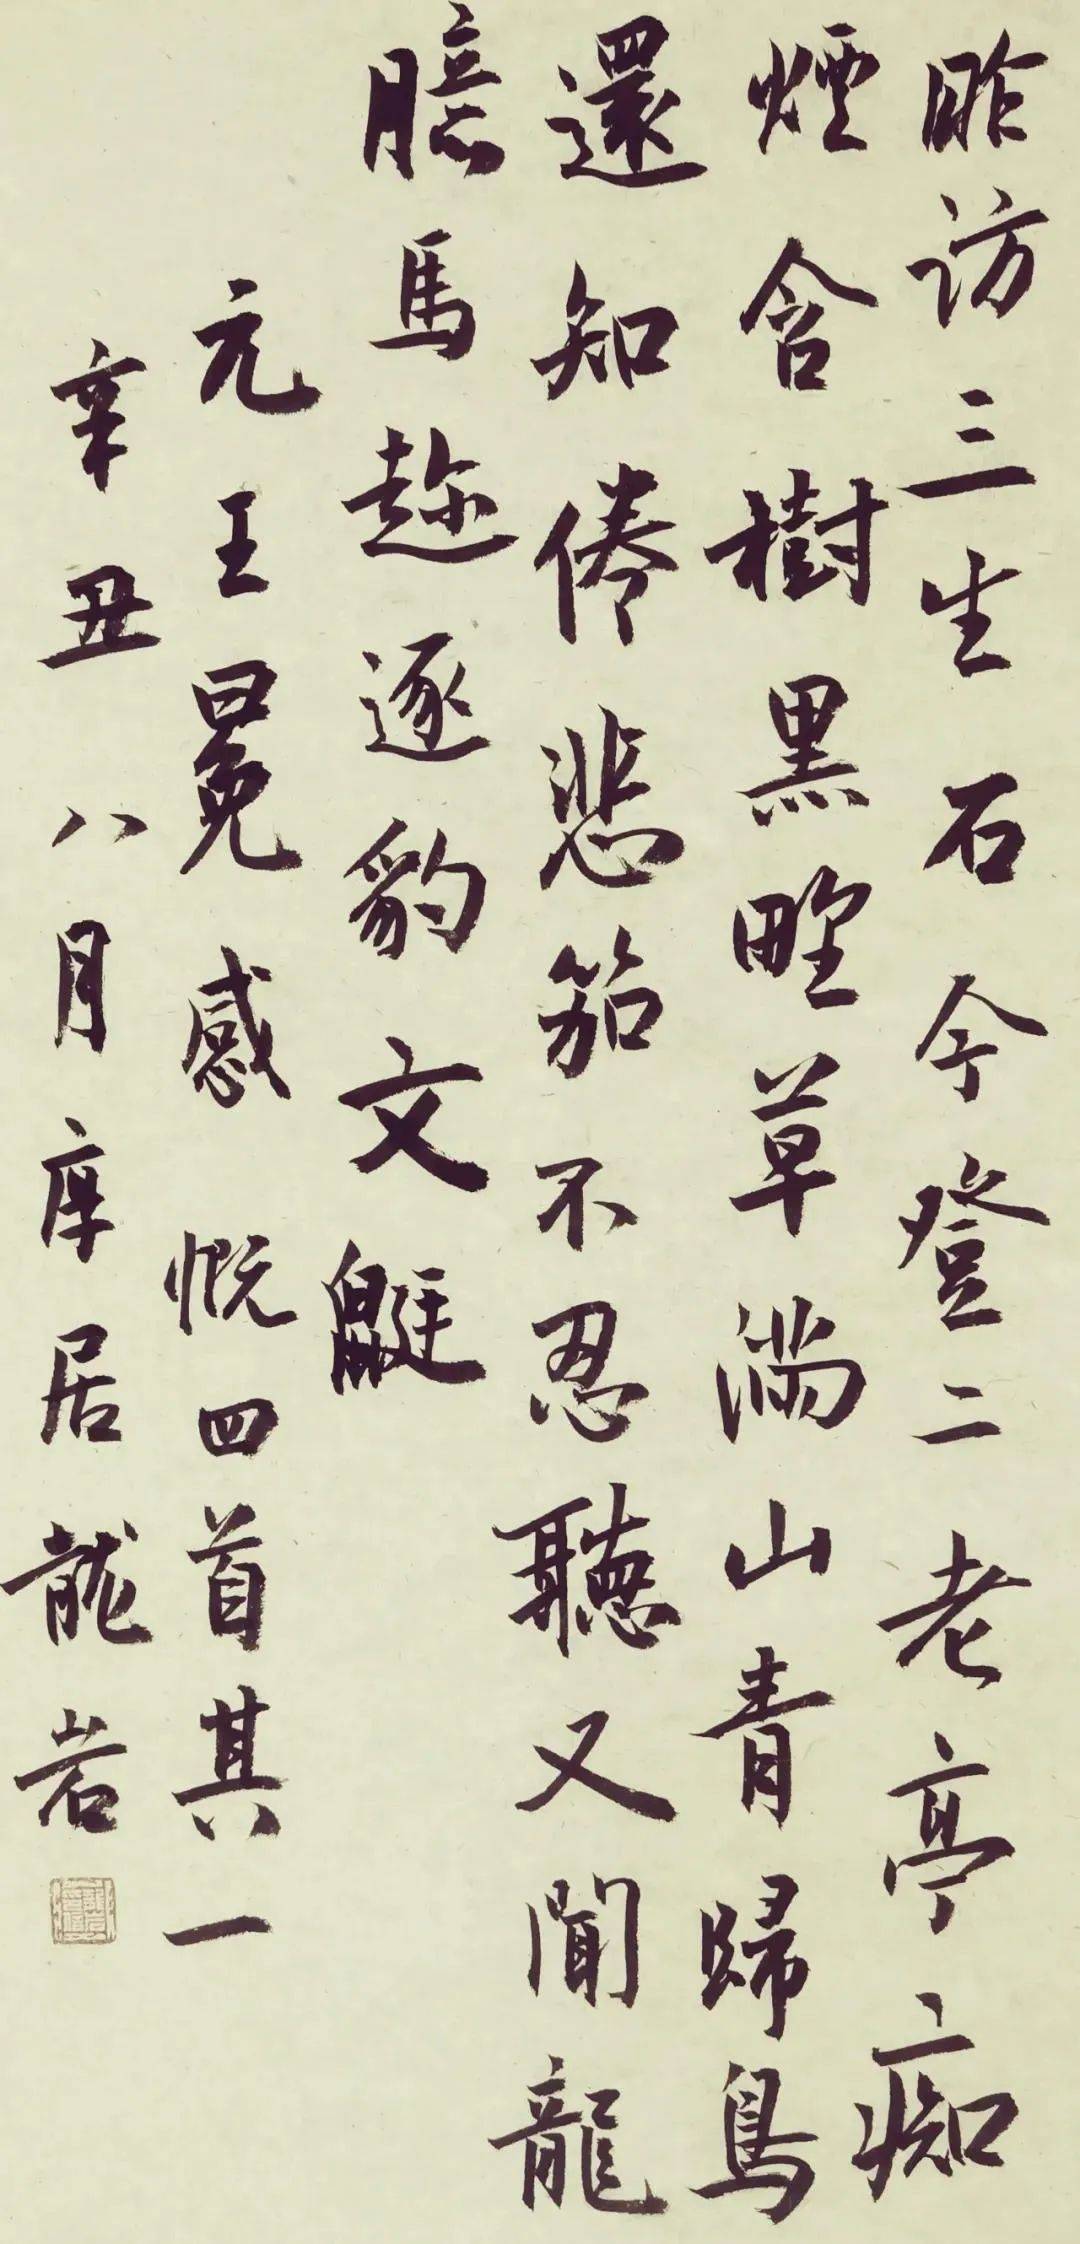 昨訪三生石今登二老亭痴
煙含樹黑野草滿山青歸鳥
還知倦悲笳不忍聽又聞龍
臆馬趂逐豹文鼮
元王冕感慨四首其一
辛丑八月居龍岩